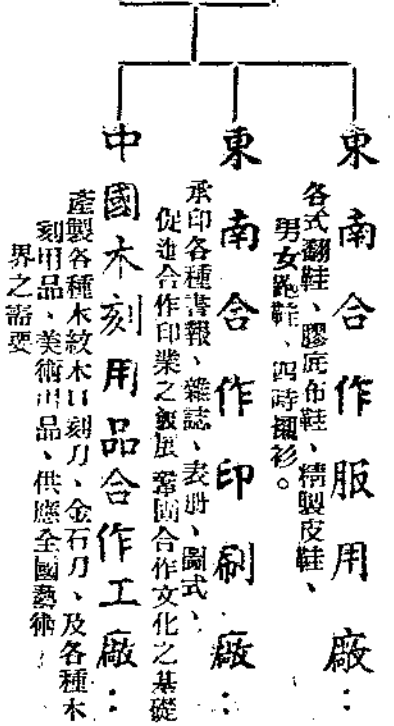 東南合作服用廠：
各式翻鞋、膠底布鞋、精製皮鞋、
男女跑鞋、四時襯衫。
東南合作印刷廠：
承印各種書報、雜誌、表册、圖式、
促進合作印業之發展 鞏固合作文化之基礎
中國木刻用品合作工廠：
產製各種木紋木口刻刀、金石刀、及各種木
刻用品、美術用品、供應全國藝術
界之需要